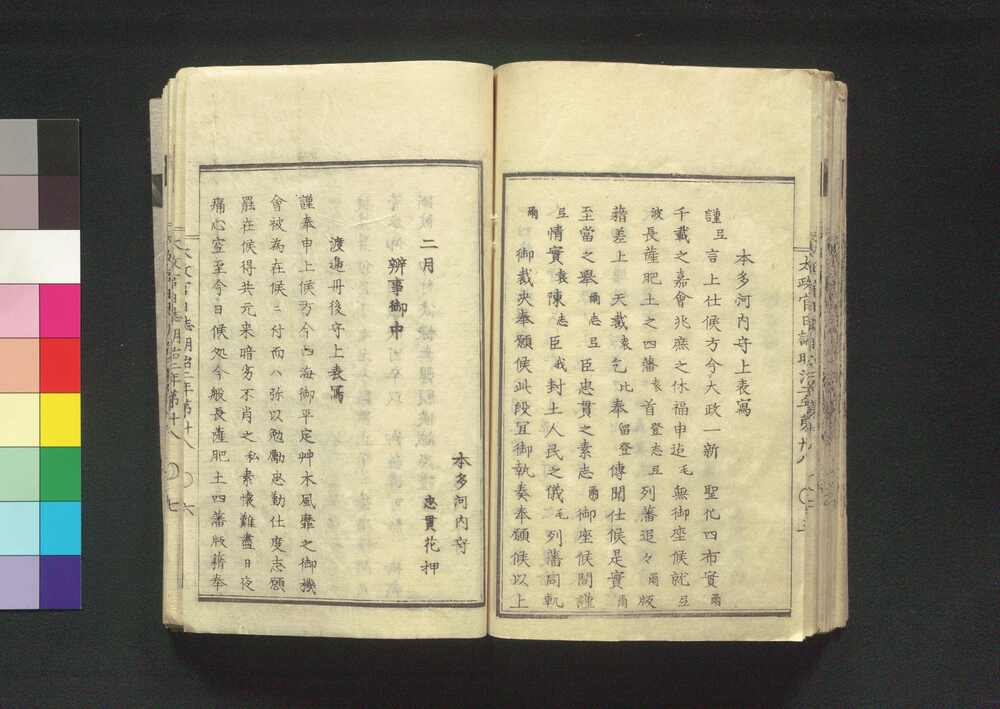 本多河内守上表寫
謹且言上仕候方今大政一新 聖化四布實爾
千載之嘉會兆庶之休福申迄毛無御座候就且
波長薩肥土之四藩袁首登志且列藩追々爾版
藉差上 天裁袁乞比奉留登傳聞仕候是實爾
至當之舉爾志且臣忠貫之素志爾御座候間謹
且情實袁陳志臣我封土人民之儀毛列藩同軌
爾御裁決奉願候此段宜御執奏奉願候以上
本多河内守
忠貫花押
二月
辨事御中
渡邊丹後守上表寫
謹奉申上候方今四海御平定艸木風靡之御機
會被為在候ニ付而八弥以勉勵忠勤仕度志願
罷在候得共元来暗劣不肖之私素懷難盡日夜
痛心空至今日候処今般長薩肥土四藩版藉奉
太政官日誌明治二年第十八
六
七